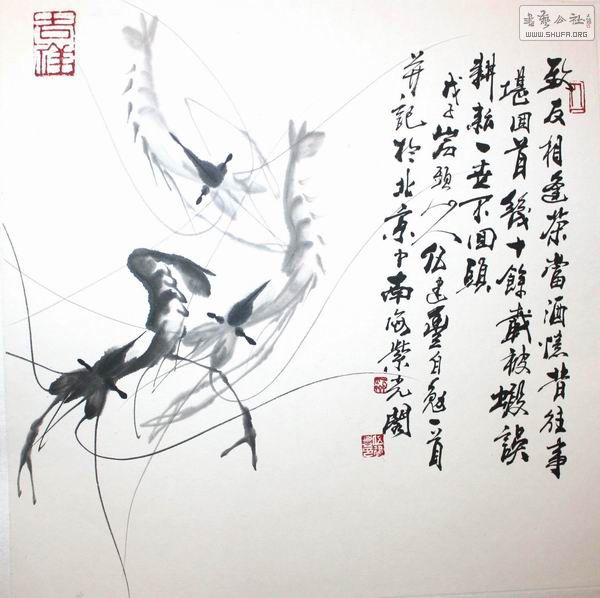 书藝公社
WWW.SHUFA.ORG
吉祥
故友相逢茶當酒憶昔往事
堪回首幾十餘載被蝦誤
耕耘一世不回頭
戊子岩頭山人伍建自勉一首
并記於北京中南海紫光閣